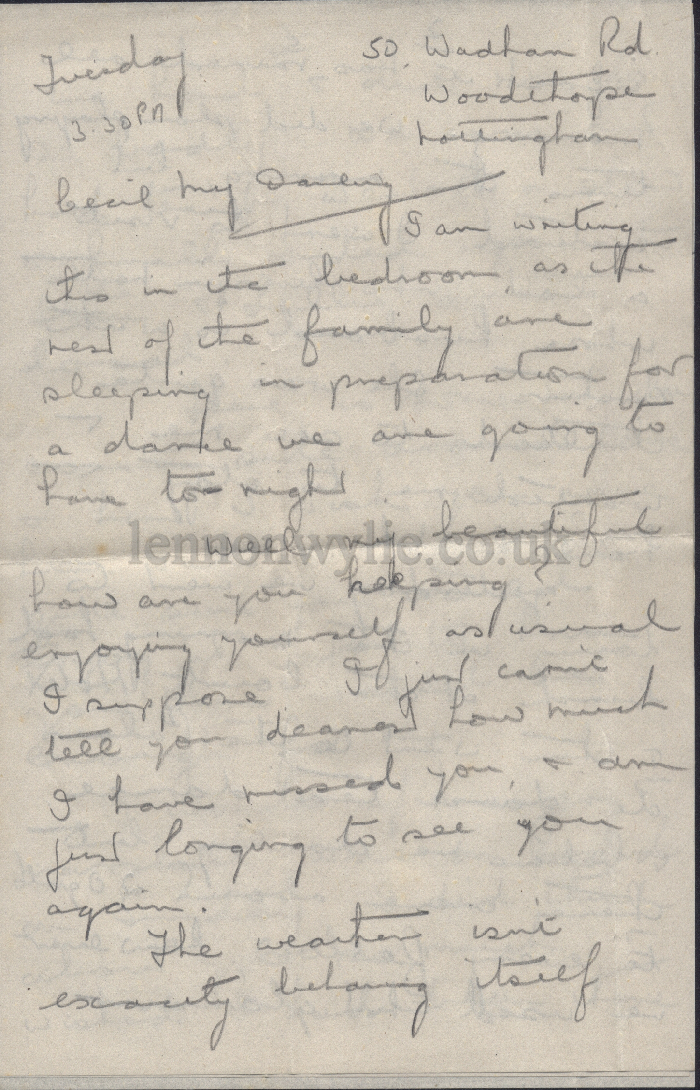 Tuesday
3.30PM
50, Wadham Rd.
Woodthorpe
Nottingham
Cecil My Darling
I am writing
this in the bedroom, as the
rest of the family are
sleeping in preparation for
a dance we are going to
have to-night
Well my beautiful
lennonwylie.co.uk
how are you keeping?
enjoying yourself as usual
I suppose I just can't
tell you dearest how much
I have missed you, & am
just longing to see you
again.
The weather isn't
exactly behaving itself